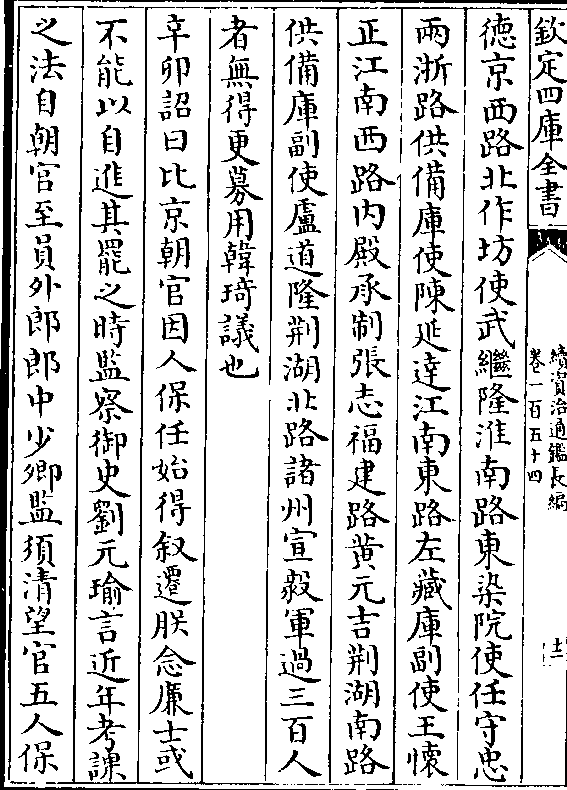 欽定四庫全書
續資治通鑑長編
卷一百五十四
十二
德京西路北作坊使武繼隆淮南路東染院使任守忠
兩浙路供備庫使陳延逹江南東路左藏庫副使王懷
正江南西路内殿承制張志福建路黄元吉荆湖南路
供備庫副使盧道隆荆湖北路諸州宣毅軍過三百人
者無得更募用韓琦議也
辛卯詔曰比京朝官因人保任始得叙遷朕念廉士或
不能以自進其罷之時監察御史劉元瑜言近年考課
之法自朝官至員外郎郎中少卿監須清望官五人保